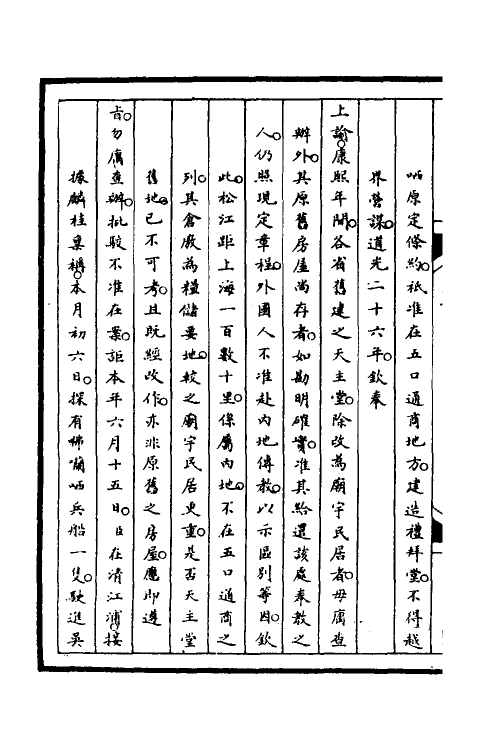 哂原定條約。祇准在五口通商地方。建造禮拜堂。不得越
界營謀。道光二十六年。欽奉
上諭。康熙年間。各省舊建之天主堂。除改為廟宇民居者。毋庸查
辦外。其原舊房屋尚存者。如勘明確實。准其給還該處奉教之
人。仍照現定章程。外國人不准赴內地傳教。以示區別等因。欽
此。松江距上海一百數十里。係屬內地。不在五口通商之
列。其倉廠為糧儲要地。較之廟宇民居更重。是否天主堂
舊地。已不可考。且既經改作。亦非原舊之房屋。應即遵
旨。勿庸查辦。批駁不准在案。詎本年六月十五日。臣在清江浦。接
據麟桂稟稱。本月初六日。探有咈囒哂兵船一隻。駛進吳